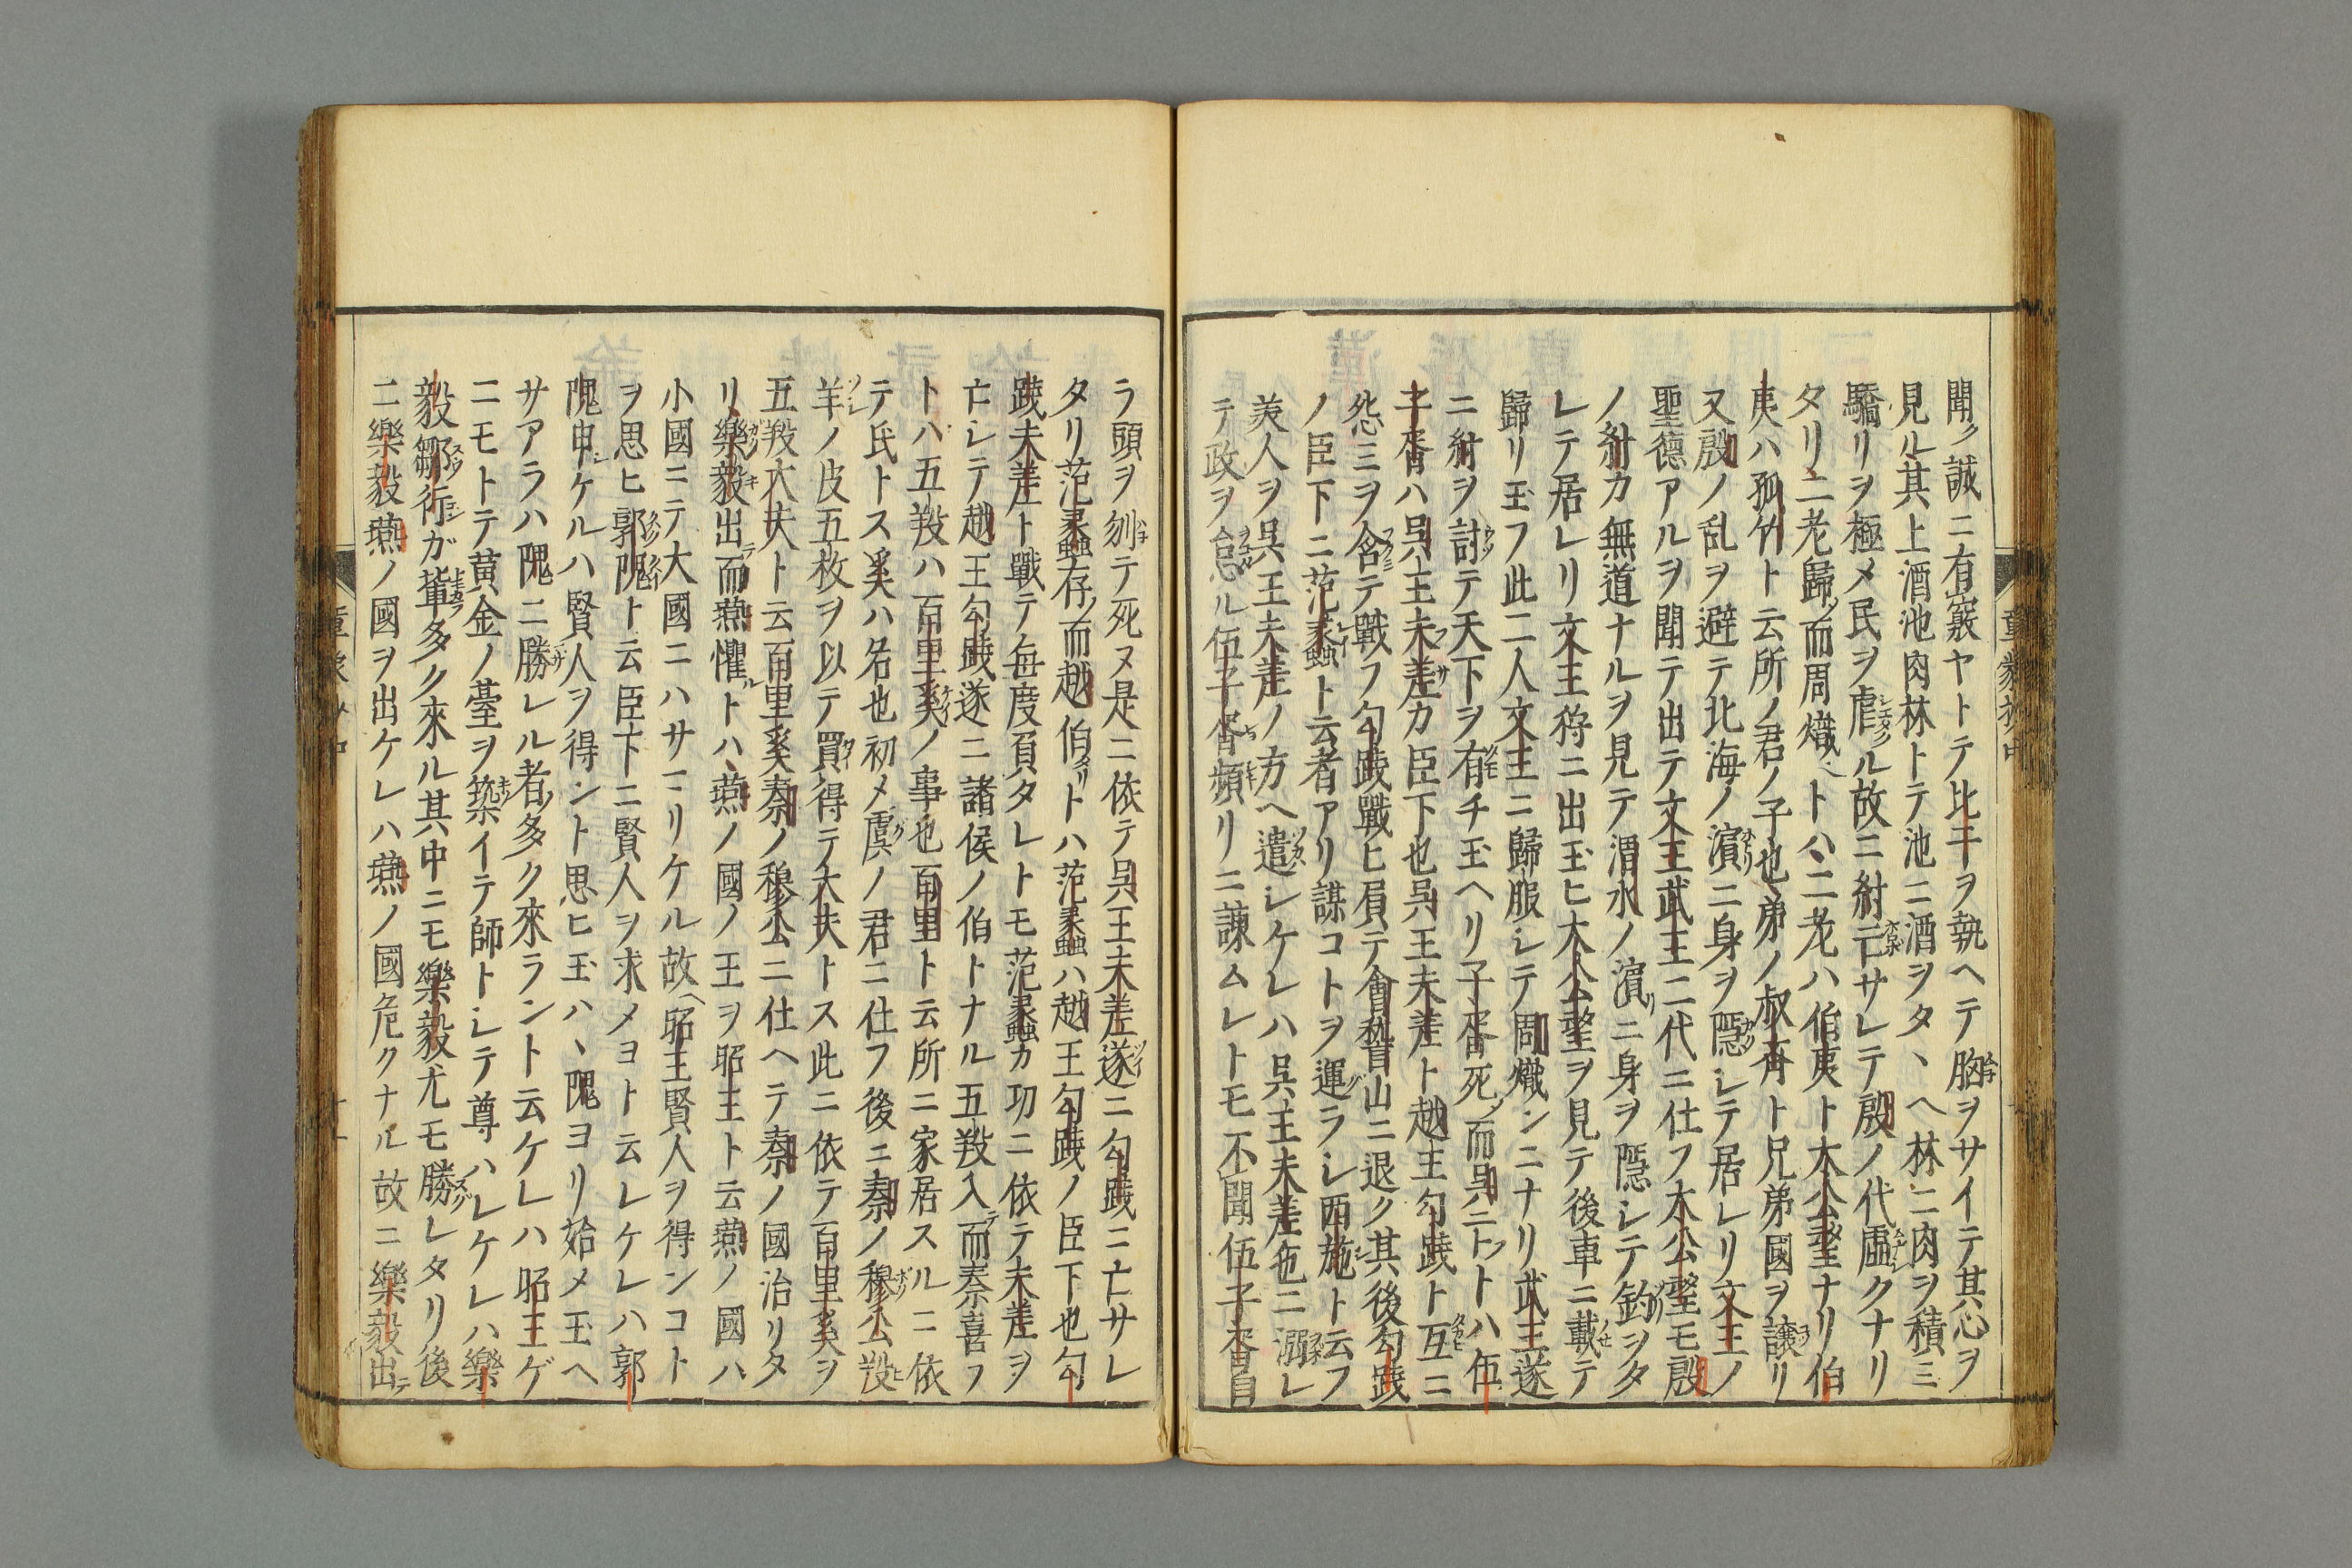 聞ク誠ニ有竅ヤトテ比干ヲ執ヘテ胸ヲサイテ其心ヲ
見ル其上酒池肉林トテ池ニ酒ヲタヽヘ林ニ肉ヲ積ミ
驕リヲ極メ民ヲ虐ル故ニ紂亡サレテ殷ノ代虚クナリ
タリ二老歸ノ而周熾ントハ二老ハ伯夷ト大公望ナリ伯
夷ハ孤竹ト云所ノ君ノ子也弟ノ叔斉ト兄弟國ヲ譲リ
又殷ノ乱ヲ避テ北海ノ濵ニ身ヲ隠シテ居レリ文王ノ
聖徳アルヲ聞テ出テ文王武王二代ニ仕フ大公望モ殷
ノ紂カ無道ナルヲ見テ渭水ノ濵ニ身ヲ隠シテ釣ヲタ
レテ居レリ文王狩ニ出玉ヒ大公望ヲ見テ後車ニ載テ
歸リ玉フ此二人文王ニ歸服シテ周熾ンニナリ武王遂
ニ紂ヲ討テ天下ヲ有チ玉ヘリ子胥死ノ而呉亡フトハ伍
子胥ハ呉王夫差カ臣下也呉王夫差ト越王勾踐ト互ニ
怨ミヲ含テ戰フ勾踐戰ヒ負テ會稽山ニ退ク其後勾踐
ノ臣下ニ范蠡ト云者アリ謀コトヲ運ラシ西施ト云フ
美人ヲ呉王夫差ノ方ヘ遣シケレハ呉王夫差色ニ溺レ
テ政ヲ怠ル伍子胥頻リニ諫ムレトモ不聞伍子胥自
ラ頭ヲ刎テ死ヌ是ニ依テ呉王夫差遂ニ勾踐ニ亡サレ
タリ范蠡存ノ而越伯タリトハ范蠡ハ越王勾踐ノ臣下也勾
踐夫差ト戰テ毎度負タレトモ范蠡カ功ニ依テ夫差ヲ
亡シテ越王勾踐遂ニ諸侯ノ伯トナル五羖入而秦喜フ
トハ五羖ハ百里奚ノ事也百里ト云所ニ家居スルニ依
テ氏トス奚ハ名也初メ虞ノ君ニ仕フ後ニ秦ノ穆公羖
羊ノ皮五枚ヲ以テ買得テ大夫トス此ニ依テ百里奚ヲ
五羖大夫ト云百里奚秦ノ穆公ニ仕ヘテ秦ノ國治リタ
リ樂毅出而燕懼ルトハ燕ノ國ノ王ヲ昭王ト云燕ノ國ハ
小國ニテ大國ニハサマリケル故ヘ昭王賢人ヲ得ンコト
ヲ思ヒ郭隗ト云臣下ニ賢人ヲ求メヨト云レケレハ郭
隗申ケルハ賢人ヲ得ント思ヒ玉ハヽ隗ヨリ始メ玉ヘ
サアラハ隗ニ勝レル者多ク來ラント云ケレハ昭王ゲ
ニモトテ黄金ノ臺ヲ築イテ師トシテ尊ハレケレハ樂
毅鄒衍ガ輩多ク來ル其中ニモ樂毅尤モ勝レタリ後
ニ樂毅燕ノ國ヲ出ケレハ燕ノ國危クナル故ニ樂毅出テ